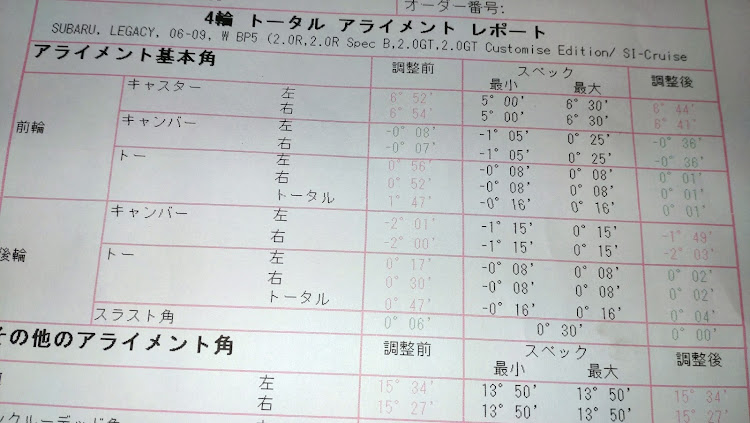 オーダー番号:
4輪 トータル アライメント レポート
SUBARU, LEGACY, 06-09, W BP5 (2.0R,2.0R Spec B,2.0GT,2.0GT Customise Edition/ SI-Cruise
アライメント基本角 調整前 スペック 調整後
最小 最大
前輪 キャスター 左 6° 52' 5° 00' 6° 30' 6° 44'
右 6° 54' 5° 00' 6° 30' 6° 41'
キャンバー 左 -0° 08' -1° 05' 0° 25' -0° 36'
右 -0° 07' -1° 05' 0° 25' -0° 36'
トー 左 0° 56' -0° 08' 0° 08' 0° 01'
右 0° 52' -0° 08' 0° 08' 0° 01'
トータル 1° 47' -0° 16' 0° 16' 0° 01'
後輪 キャンバー 左 -2° 01' -1° 15' 0° 15' -1° 49'
右 -2° 00' -1° 15' 0° 15' -2° 03'
トー 左 0° 17' -0° 08' 0° 08' 0° 02'
右 0° 30' -0° 08' 0° 08' 0° 02'
トータル 0° 47' -0° 16' 0° 16' 0° 04'
スラスト角 0° 06' 0° 30' 0° 00'
その他のアライメント角 調整前 スペック 調整後
最小 最大
左 15° 34' 13° 50' 13° 50' 15° 34'
右 15° 27' 13° 50' 13° 50' 15° 27'